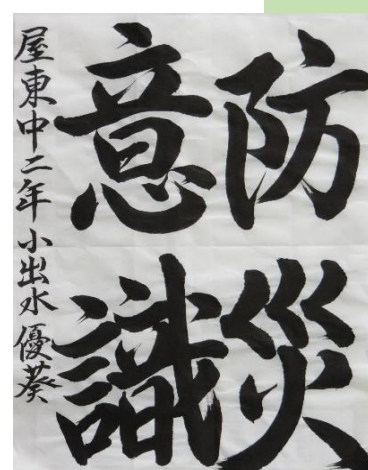 防災
意識
屋東中二年 小出水優葵